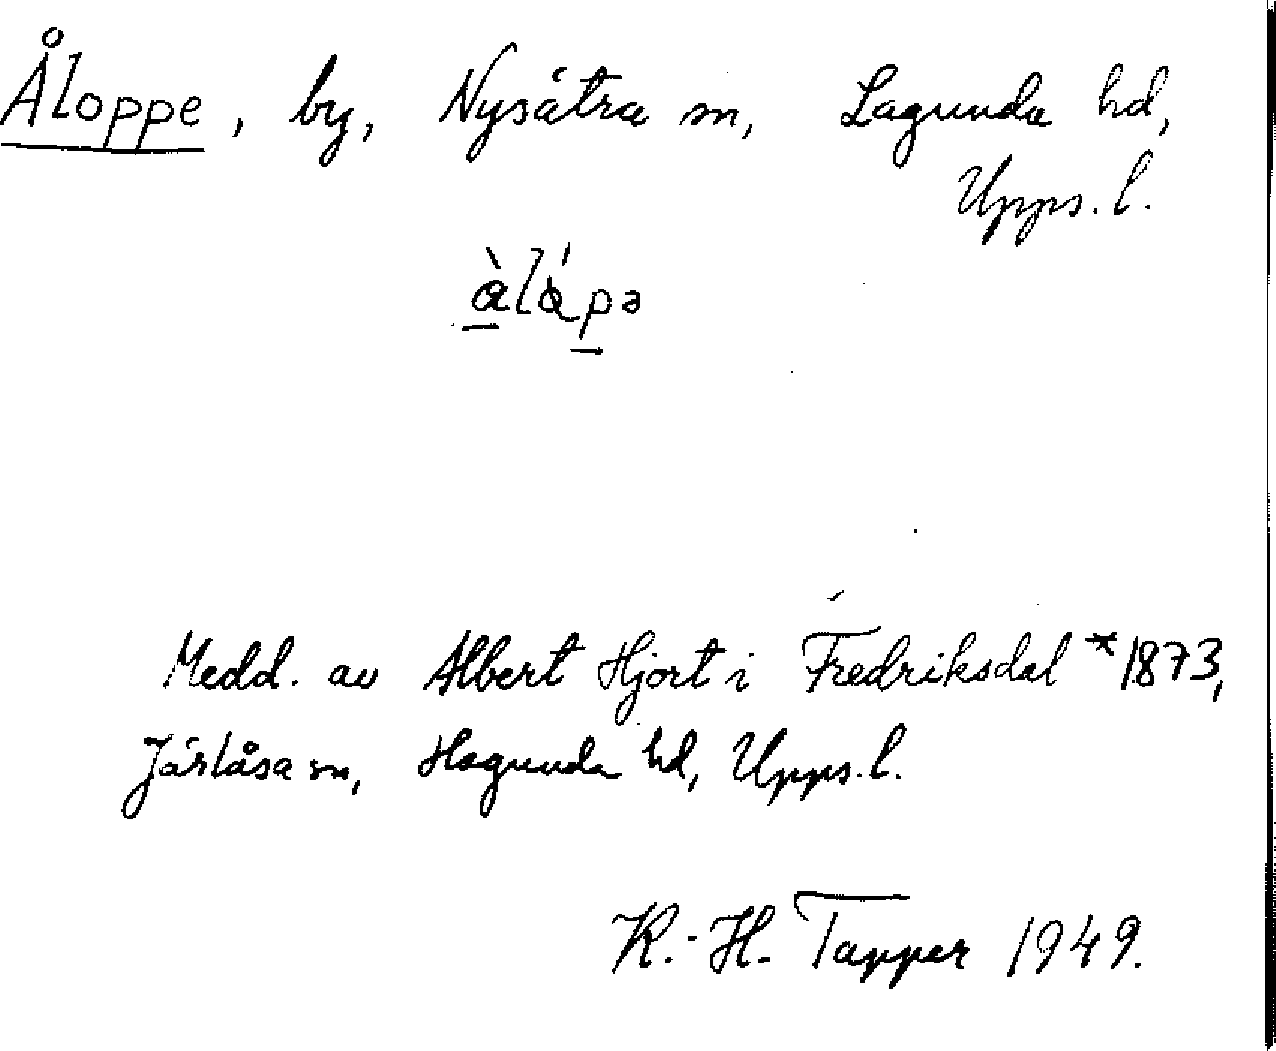 Åloppe, by, Nysätra sn, Lagunda hd,
Upps. l.
Medd. av Albert Hjort i Fredriksdal *1873,
Järlåsa sn, Hagunda hd, Upps. l.
K.-H. Tapper 1949.